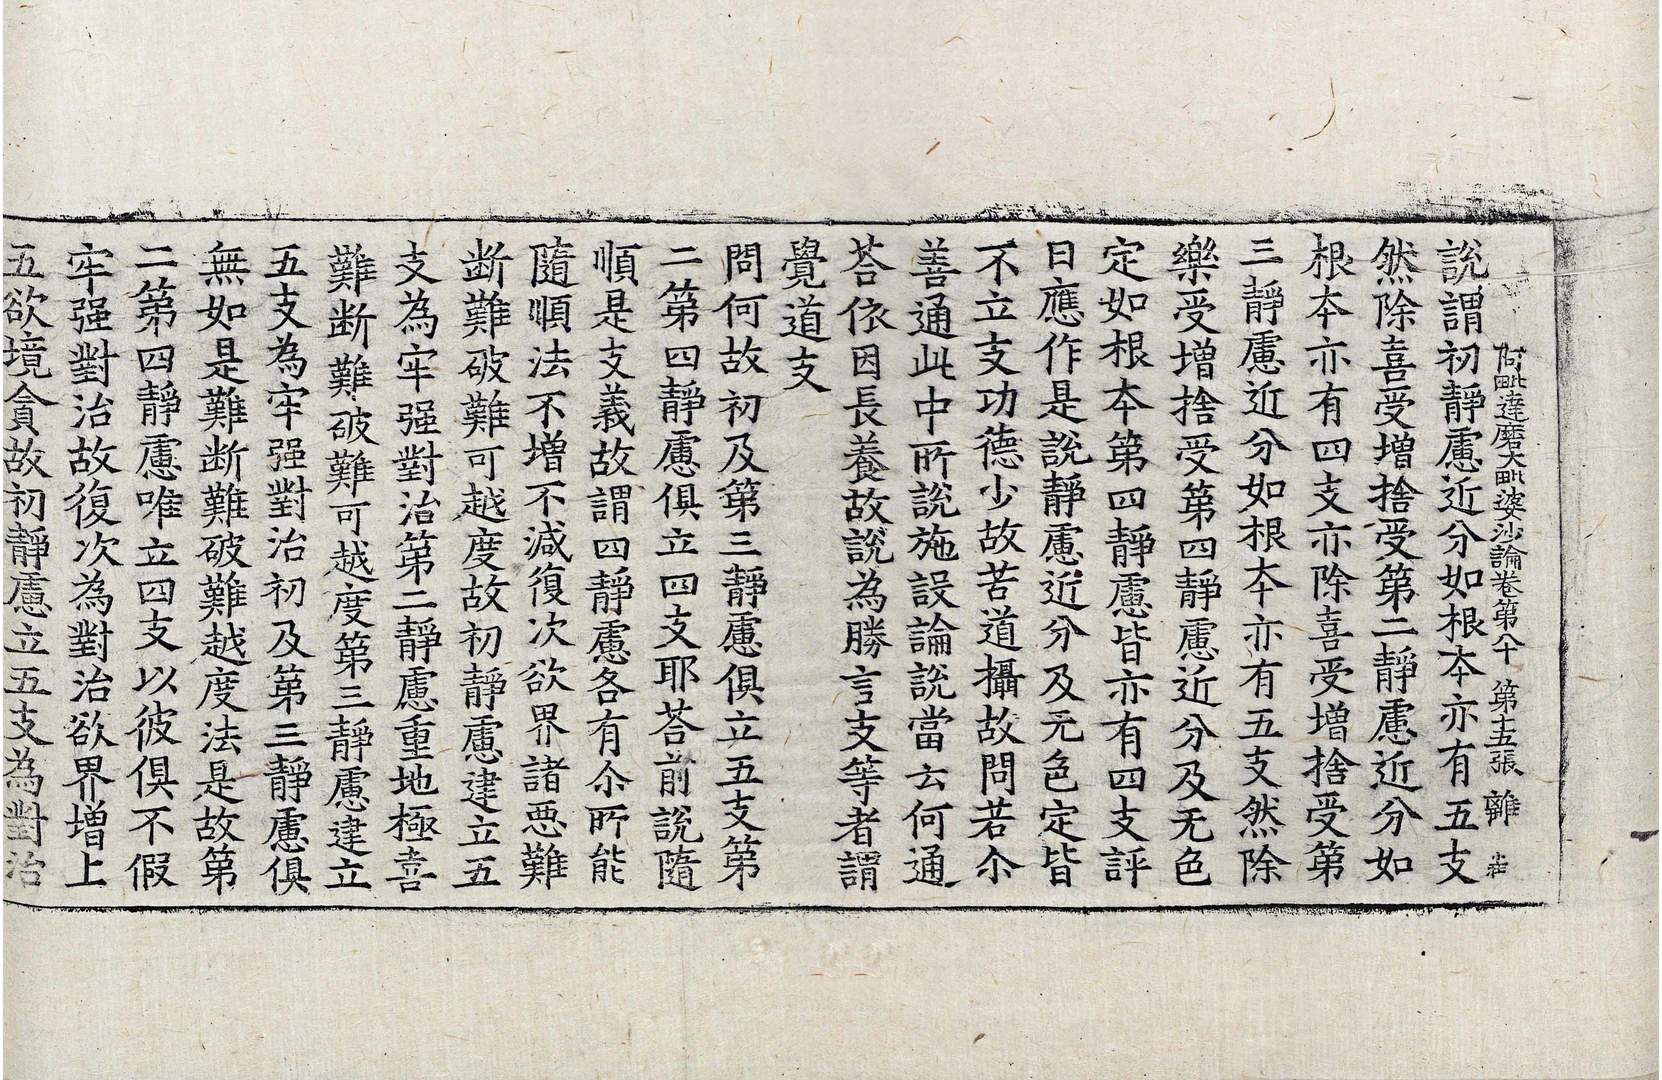 阿毗達磨大毗婆沙論卷第八十 第十五張 雖
說謂初靜慮近分如根本亦有五支
然除喜受增捨受第二靜慮近分如
根本亦有四支亦除喜受增捨受第
三靜慮近分如根本亦有五支然除
樂受增捨受第四靜慮近分及无色
定如根本第四靜慮皆亦有四支評
曰應作是說靜慮近分及无色定皆
不立支功德少故苦道攝故問若尒
善通此中所說施設論說當云何通
荅依因長養故說為勝言支等者謂
覺道支
問何故初及第三靜慮俱立五支第
二第四靜慮俱立四支耶荅前說隨
順是支義故謂四靜慮各有尒所能
隨順法不增不減復次欲界諸惡難
断難破難可越度故初靜慮建立五
支為牢强對治第二靜慮重地極喜
難断難破難可越度第三靜慮建立
五支為牢强對治初及第三靜慮俱
無如是難断難破難越度法是故第
二第四靜慮唯立四支以彼俱不假
牢强對治故復次為對治欲界增上
五欲境貪故初靜慮立五支為對治